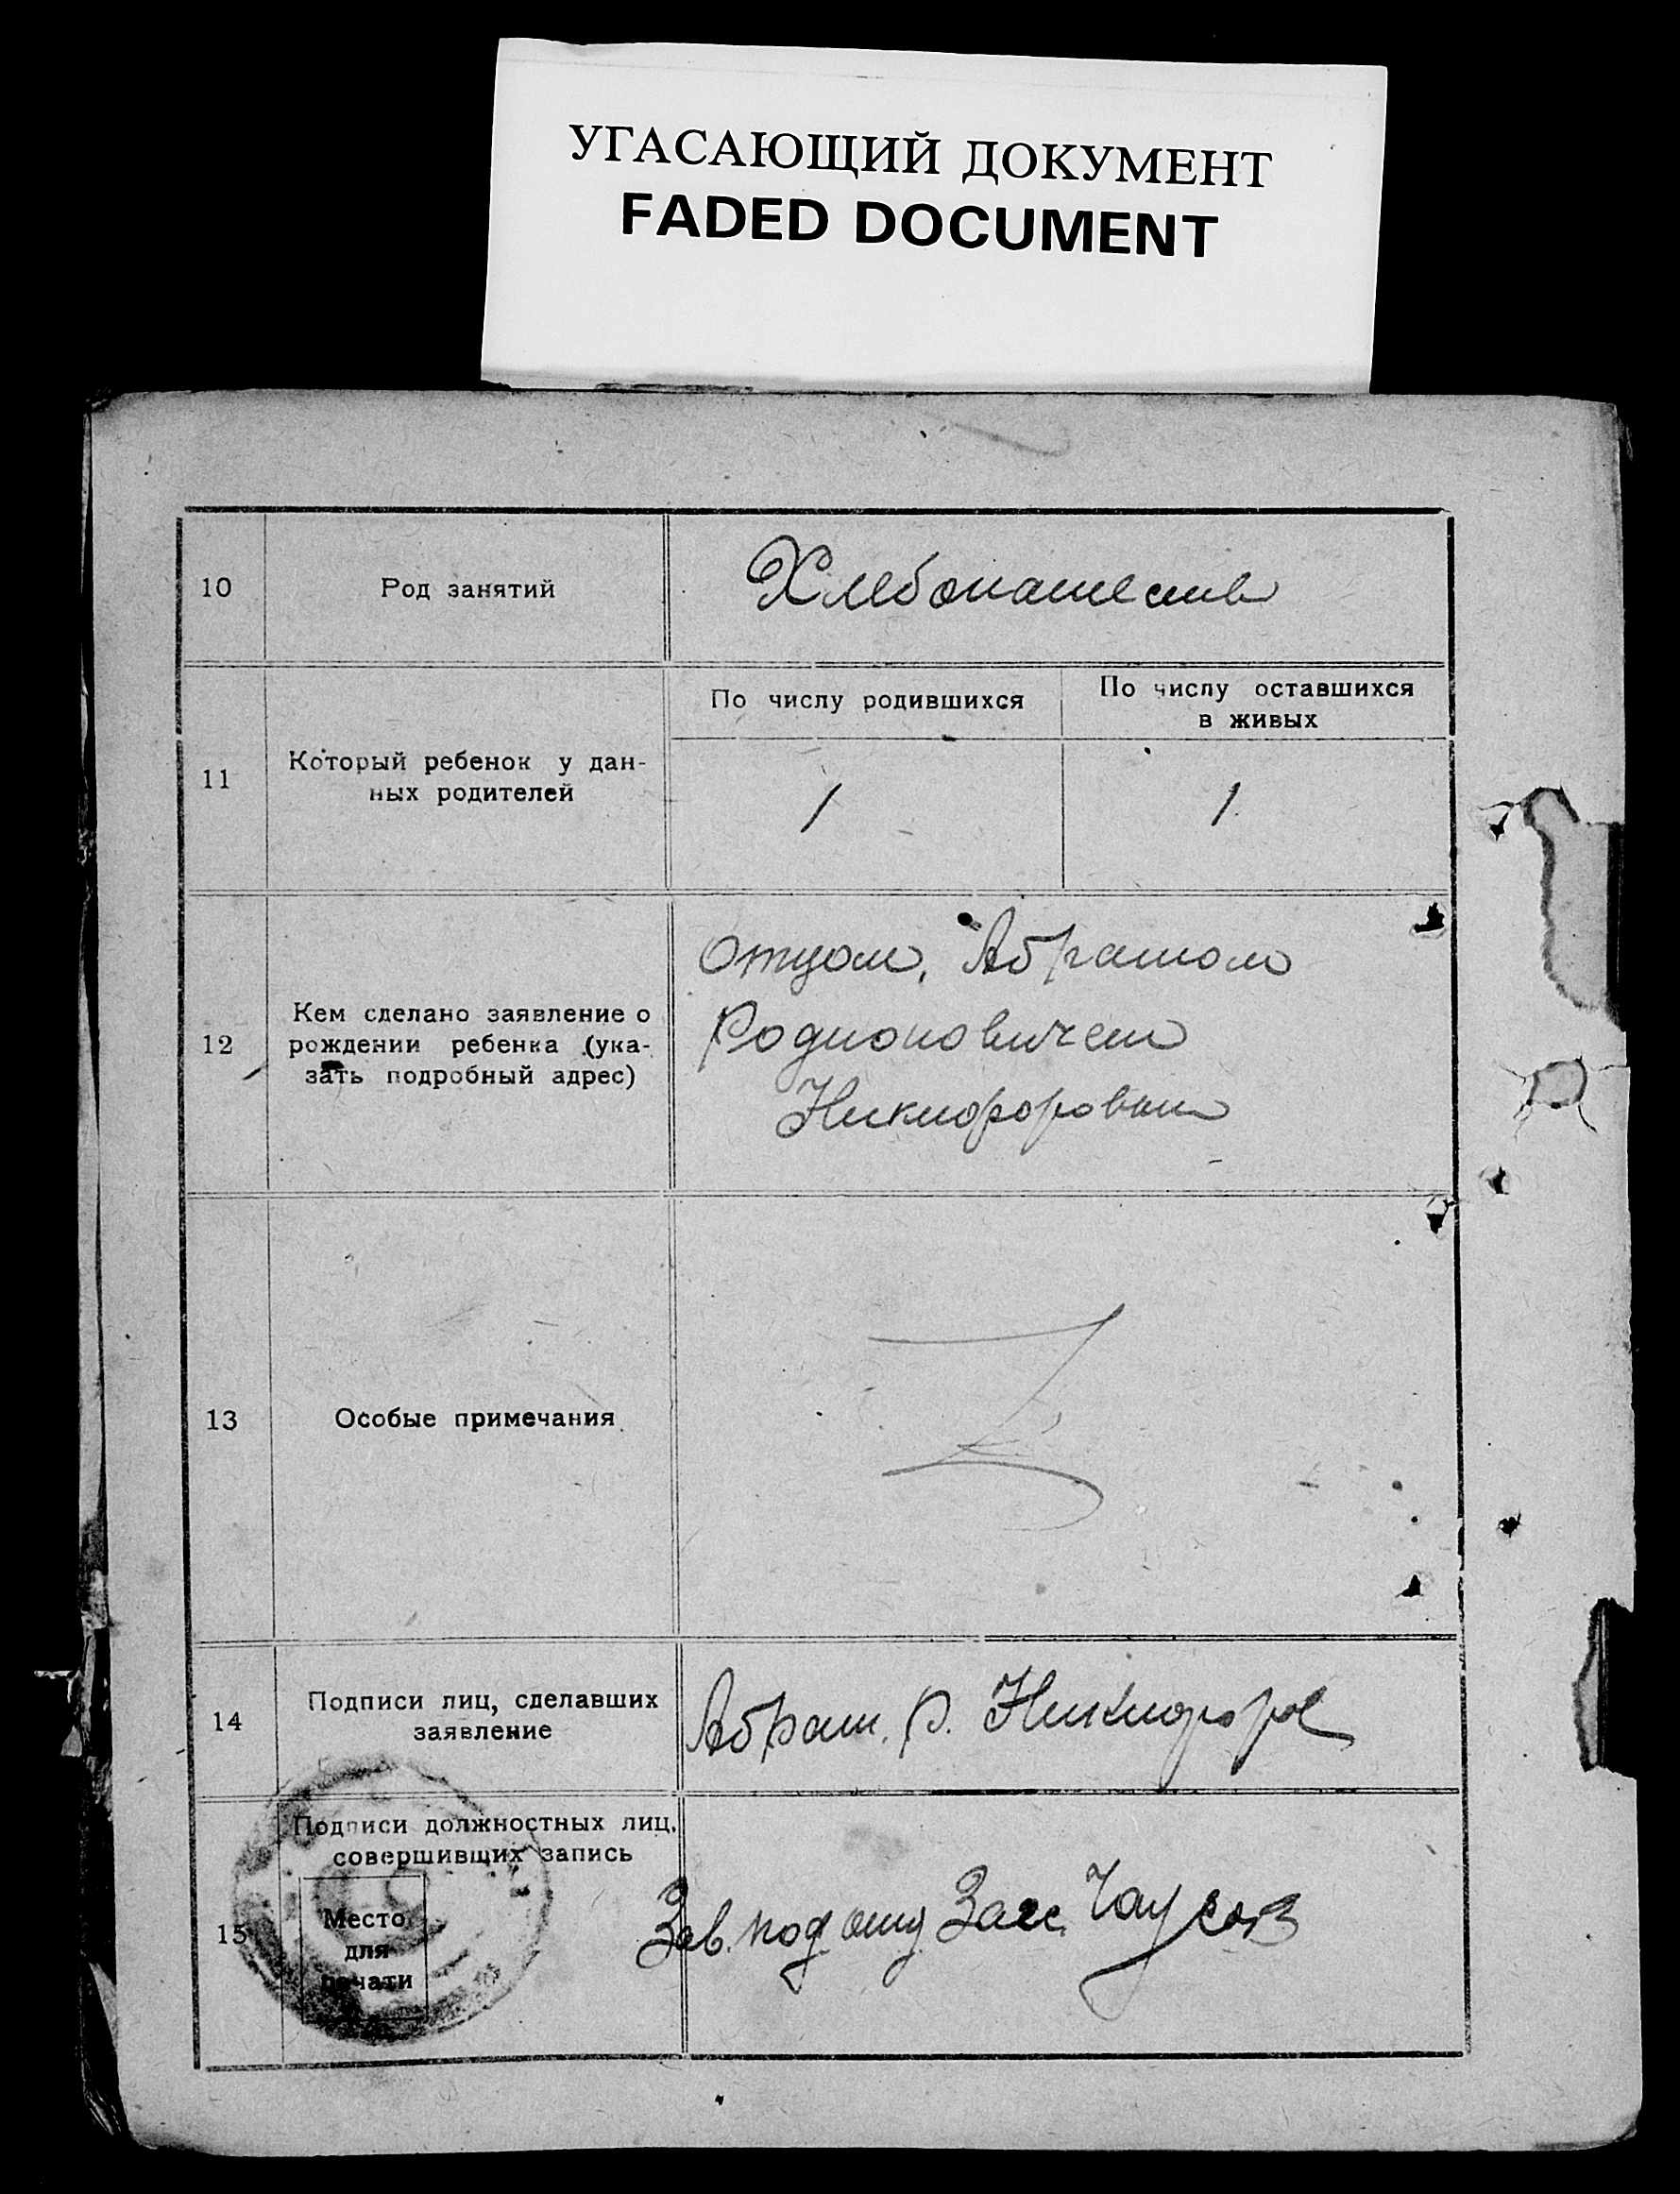 УГАСАЮЩИЙ ДОКУМЕНТ
FADED DOCUMENT
10
Род занятий
Хлебопашеств
11
Который ребенок у дан-
ных родителей
По числу родившихся
По числу оставшихся
в живых
1
1.
12
Кем сделано заявление о
рождении ребенка (ука-
зать подробный адрес)
Отцом, Абрамом
Родионовичем
Никифоровым
13
Особые примечания.
14
Подписи лиц, сделавших
заявление
Абрам. Р. Никифоров
15
Подписи должностных лиц,
совершивщих запись
Место
для
печати
Зав. под отд Загс